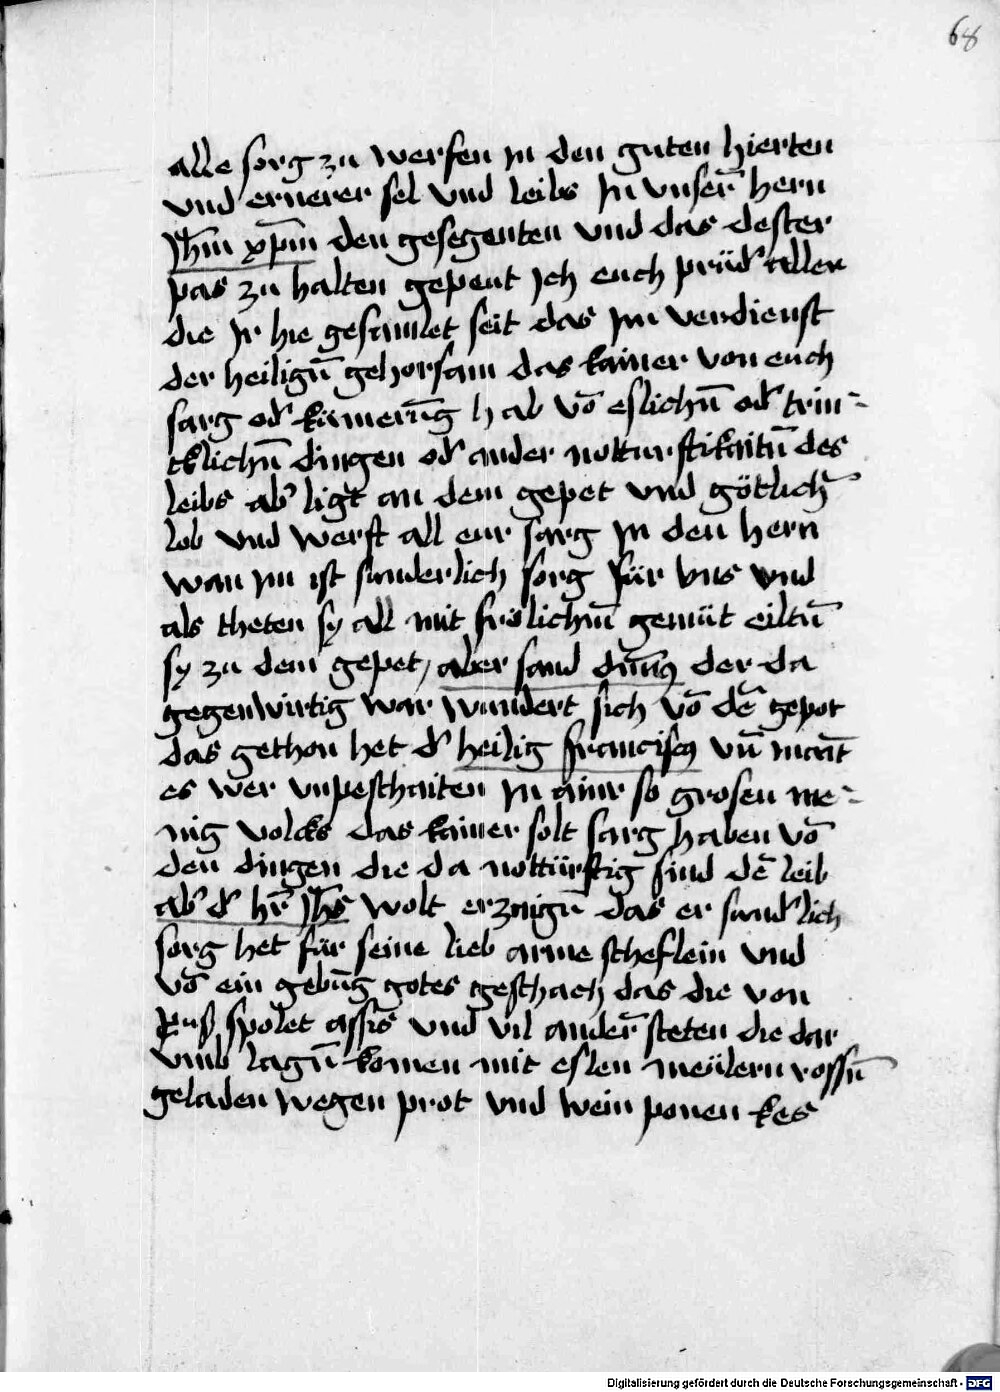 68
alle sorg zu werfen in den guten hierten
und ernerer sel und leibs In unser̄ hern
Jh̄m xp̄m den gesegenten und das dester
pas zu halten gepeut Jch euch prüd' aller
die Jr hie gesamlet seit das Im verdienst
der heilign̄ gehorsam das kainer von euch
sarg od' kümerūg hab vō eslichn̄ od' trin-
cklichn̄ dingen od' ander notturftikaitn̄ des
leibs ab' ligt an dem gepet und götlich̄
lob und werft all eur sarg In den hern
wan Im ist sunderlich sorg für vns und
als theten sy all mit frölichm̄ gemüt eiltn̄
sy zu dem gepet, aber sand der da
gegenwirtig war wundert sich vō dē gepot
das gethon het d' heilig franciscꝰ vn̄ maīt
es wer unpeschaiten In ainr so grosen me-
nig volcks das kainer solt sarg haben vō
den dingen die da nottürftig sind dē leib
ab' d' hr̄ Jh̄s wolt erzaign̄ das er sund'lich
sorg het für seine lieb arme scheflein und
vō ein gebūg gotes geschach das die von
spolet assis und vil ander̄ steten die dar
umb lagn̄ komen mit eslen meülern rossn̄
geladen wegen prot und wein ponen kes
Digitalisierung gefördert durch die Deutsche Forschungsgemeinschaft - DFG